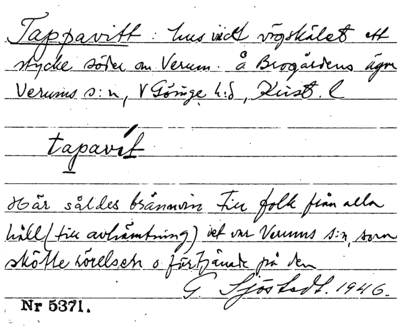 Tappavitt : hus vid vägskälet ett
stycke söder om Verum. å Brogårdens ägor
Verums s:n, V Göinge h:d, Krist. l
tapavit
Här såldes brännvin till folk från alla
håll (till avhämtning) det var Verums s:n, som
skötte rörelsen o förtjänade på den
G Sjöstedt. 1946.
Nr 5371.